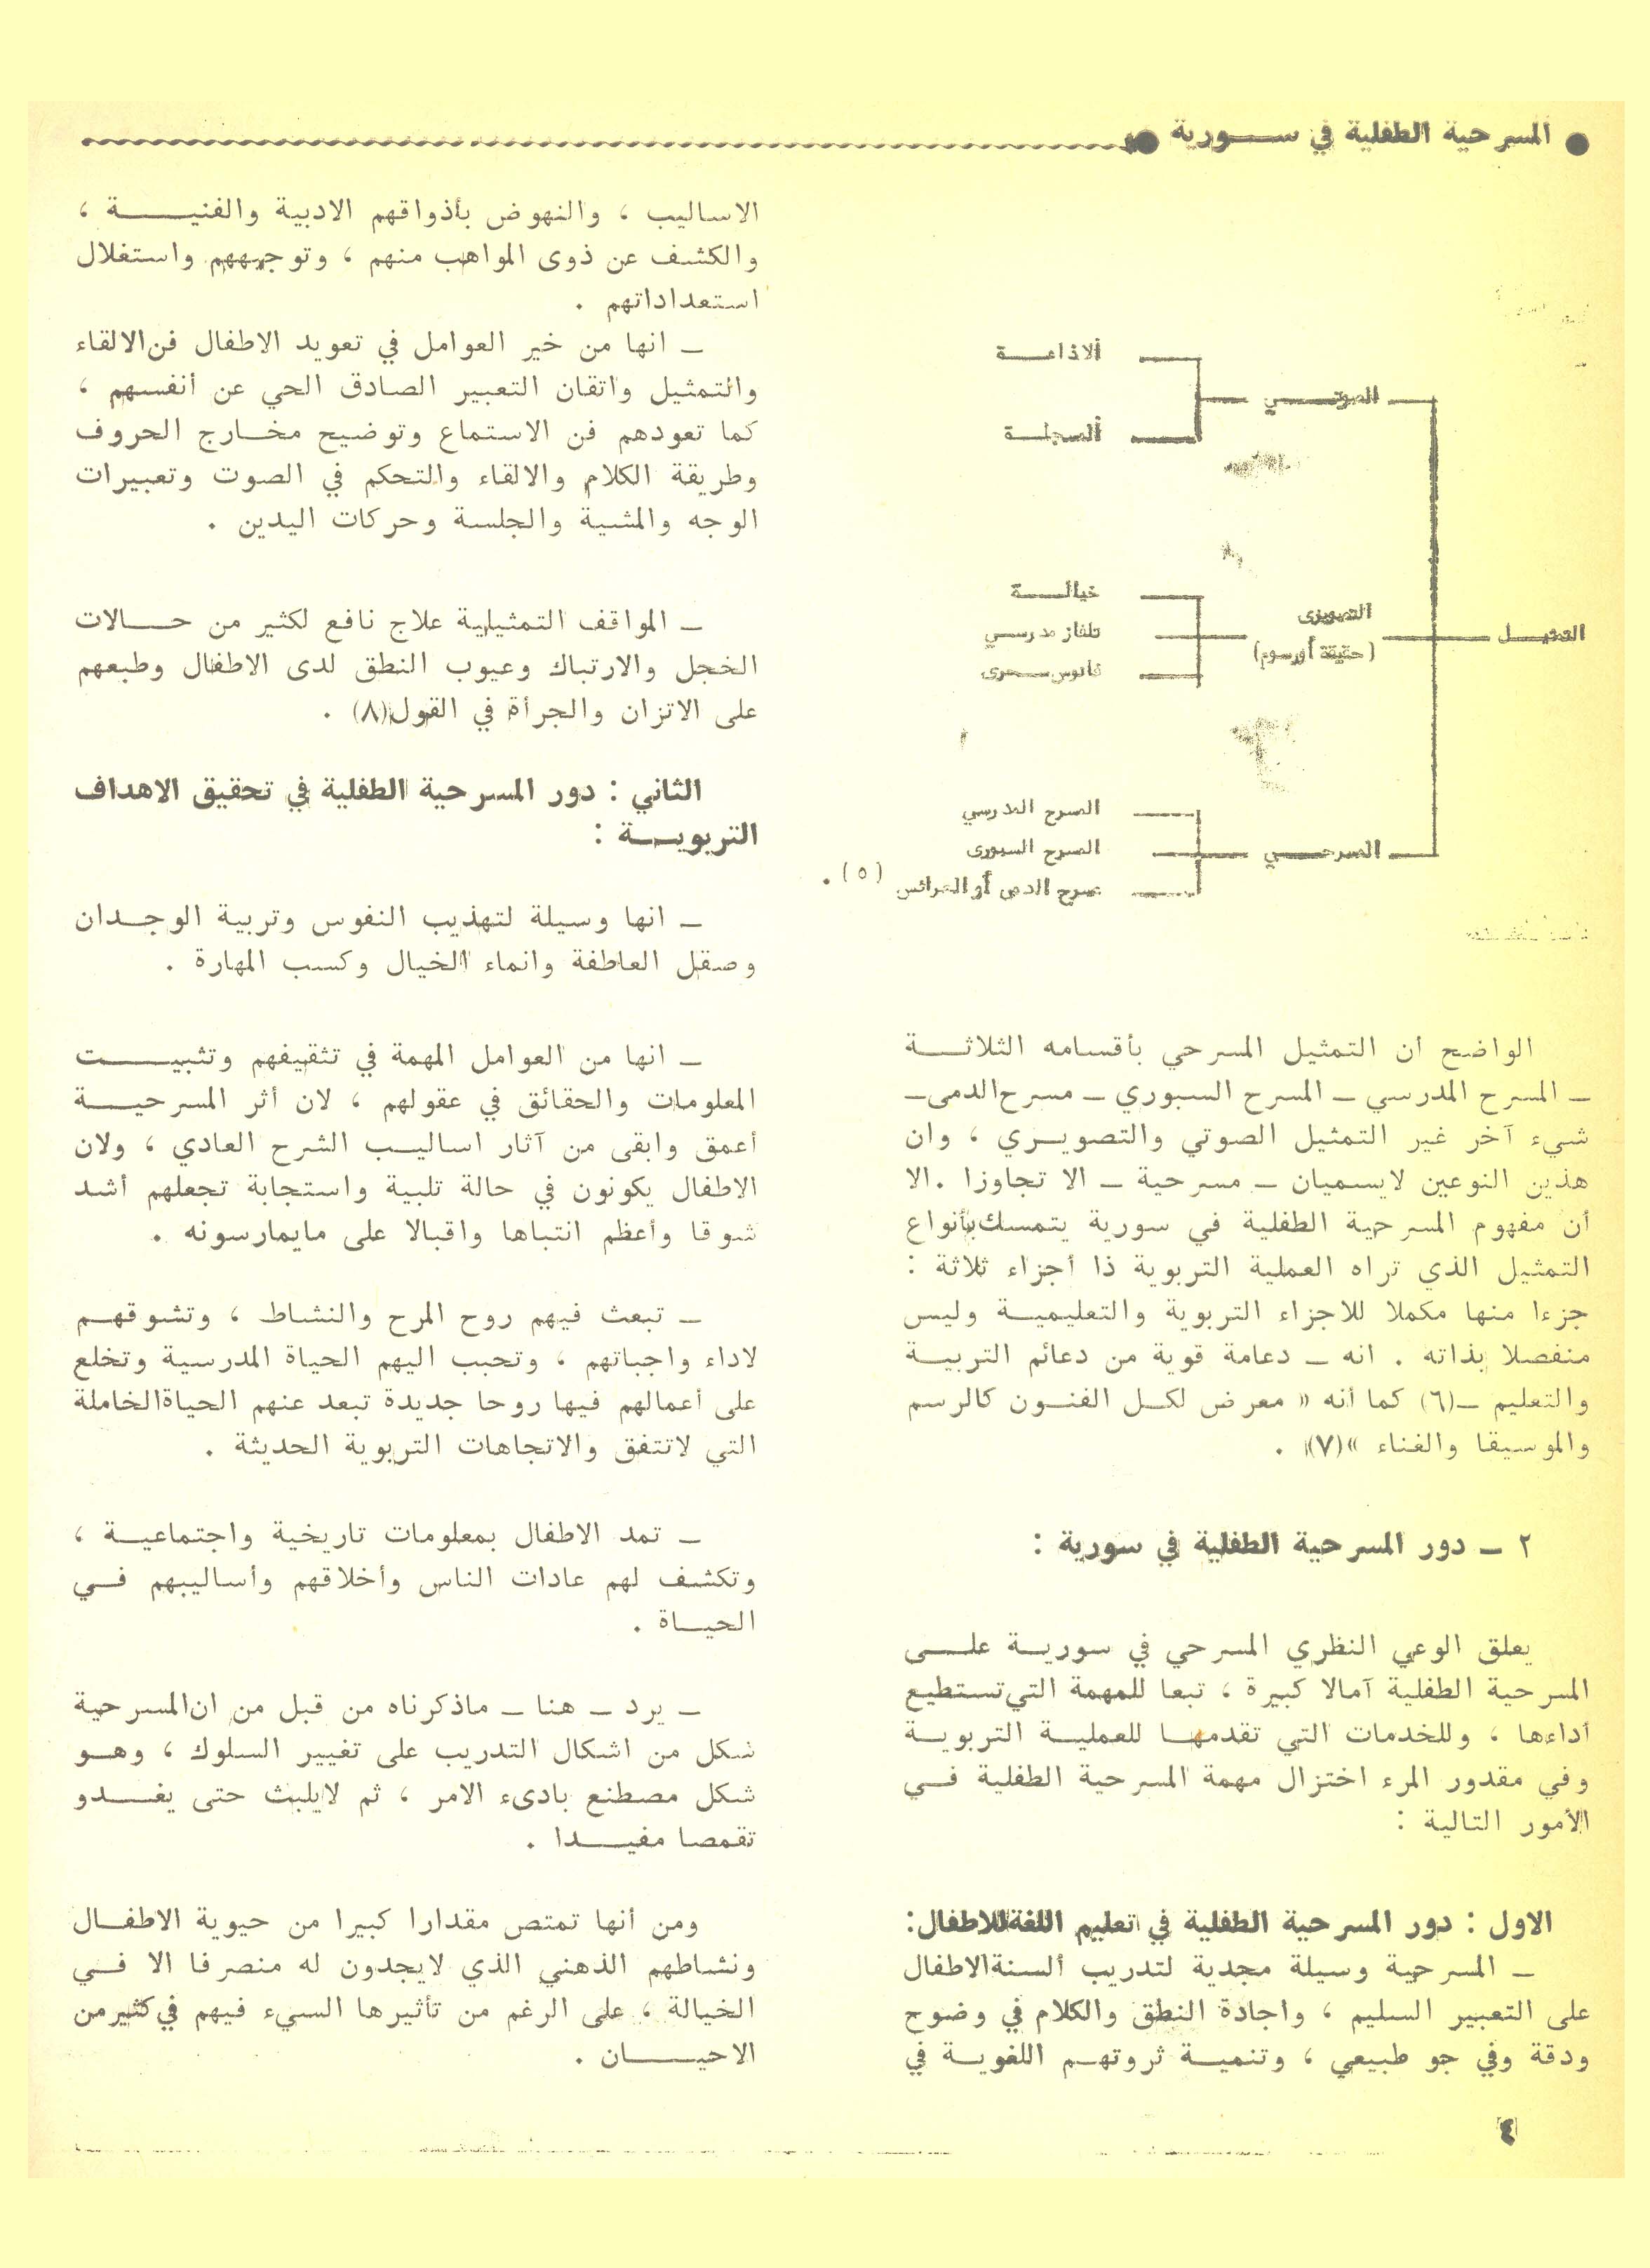 ● المسرحية الطفلية في ســـورية ●
الاذاعـــة
الصوتـــي
المسجلـــة
خيالـــة
التصويرى
تلفاز مدرسي
التمثيـــل
(حقيقة أو رسوم)
فانوس سحرى
المسرح المدرسي
المسرح السبورى
المسرحـــي
مسرح الدمى أو العرائس (٥) .
الواضح ان التمثيل المسرحي بأقسامه الثلاثـــة
ــ المسرح المدرسي ــ المسرح السبوري ــ مسرح الدمى ــ
شيء آخر غير التمثيل الصوتي والتصويـري ، وان
هذين النوعين لايسميان ــ مسرحية ــ الا تجاوزا . الا
أن مفهوم المسرحية الطفلية في سورية يتمسك بأنواع
التمثيل الذي تراه العملية التربوية ذا أجزاء ثلاثة :
جزءا منها مكملا للاجزاء التربوية والتعليميـة وليس
منفصلا بذاته . انه ــ دعامة قوية من دعائم التربيـة
والتعليم ــ(٦) كما أنه « معرض لكـل الفنـون كالرسم
والموسيقا والغناء »(٧) .
٢ ــ دور المسرحية الطفلية في سورية :
يعلق الوعي النظري المسرحي في سوريـة علـــى
المسرحية الطفلية آمالا كبيرة ، تبعا للمهمة التي تستطيع
أداءها ، وللخدمات التي تقدمهـا للعمليـة التربويـة
وفي مقدور المرء اختزال مهمة المسرحية الطفلية فـي
الأمور التالية :
الاول : دور المسرحية الطفلية في تعليم اللغة للاطفال :
ــ المسرحية وسيلة مجدية لتدريب ألسنة الاطفال
على التعبير السليم ، واجادة النطق والكلام في وضوح
ودقة وفي جو طبيعي ، وتنميـة ثروتهـم اللغويـة في
الاساليب ، والنهوض بأذواقهم الادبية والفنيـــة ،
والكشف عن ذوى المواهب منهم ، وتوجيههم واستغلال
استعداداتهم .
ــ انها من خير العوامل في تعويد الاطفال فن الالقاء
والتمثيل واتقان التعبير الصادق الحي عن أنفسهم ،
كما تعودهم فن الاستماع وتوضيح مخـارج الحروف
وطريقة الكلام والالقاء والتحكم في الصوت وتعبيرات
الوجه والمشية والجلسة وحركات اليدين .
ــ المواقف التمثيلية علاج نافع لكثير من حـــالات
الخجل والارتباك وعيوب النطق لدى الاطفال وطبعهم
على الاتزان والجرأة في القول(٨) .
الثاني : دور المسرحية الطفلية في تحقيق الاهداف
التربويـــة :
ــ انها وسيلة لتهذيب النفوس وتربية الوجـدان
وصقل العاطفة وانماء الخيال وكسب المهارة .
ــ انها من العوامل المهمة في تثقيفهم وتثبيــــت
المعلومات والحقائق في عقولهم ، لان أثر المسرحيـــة
أعمق وابقى من آثار اساليـب الشرح العادي ، ولان
الاطفال يكونون في حالة تلبية واستجابة تجعلهم أشد
شوقا وأعظم انتباها واقبالا على مايمارسونه .
ــ تبعث فيهم روح المرح والنشاط ، وتشوقهـم
لاداء واجباتهم ، وتحبب اليهم الحياة المدرسية وتخلع
على أعمالهم فيها روحا جديدة تبعد عنهم الحياة الخاملة
التي لاتتفق والاتجاهات التربوية الحديثة .
ــ تمد الاطفال بمعلومات تاريخية واجتماعيـة ،
وتكشف لهم عادات الناس وأخلاقهم وأساليبهم فـي
الحيــاة .
ــ يرد ــ هنا ــ ماذكرناه من قبل من ان المسرحية
شكل من اشكال التدريب على تغيير السلوك ، وهـو
شكل مصطنع بادىء الامر ، ثم لايلبث حتى يغـــدو
تقمصا مفيـــدا .
ومن أنها تمتص مقدارا كبيرا من حيوية الاطفـال
ونشاطهم الذهني الذي لايجدون له منصرفا الا فـي
الخيالة ، على الرغم من تأثيرها السيء فيهم في كثير من
الاحيـــان .
٤